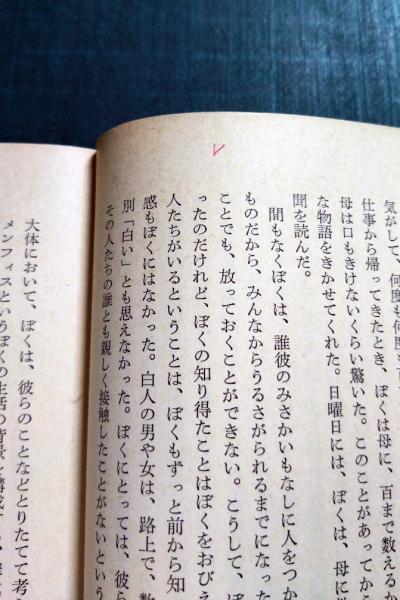 気がして、何度も何度も
仕事から帰ってきたとき、ぼくは母に、百まで数えるか
母は口もきけないくらい驚いた。このことがあってから
な物語をきかせてくれた。日曜日には、ぼくは、母に
聞を読んだ。
間もなくぼくは、誰彼のみさかいもなしに人をつか
ものだから、みんなからうるさがられるまでになった
ことでも、放っておくことができない。こうして、ぼ
ったのだけれど、ぼくの知り得たことはぼくをおびえ
人たちがいるということは、ぼくもずっと前から知
感もぼくにはなかった。白人の男や女は、路上で、数
別「白い」とも思えなかった。ぼくにとっては、彼ら
その人たちの誰とも親しく接触したことがないという
大体において、ぼくは、彼らのことなどとりたてて考
メンフィスというぼくの生活の背景を構成